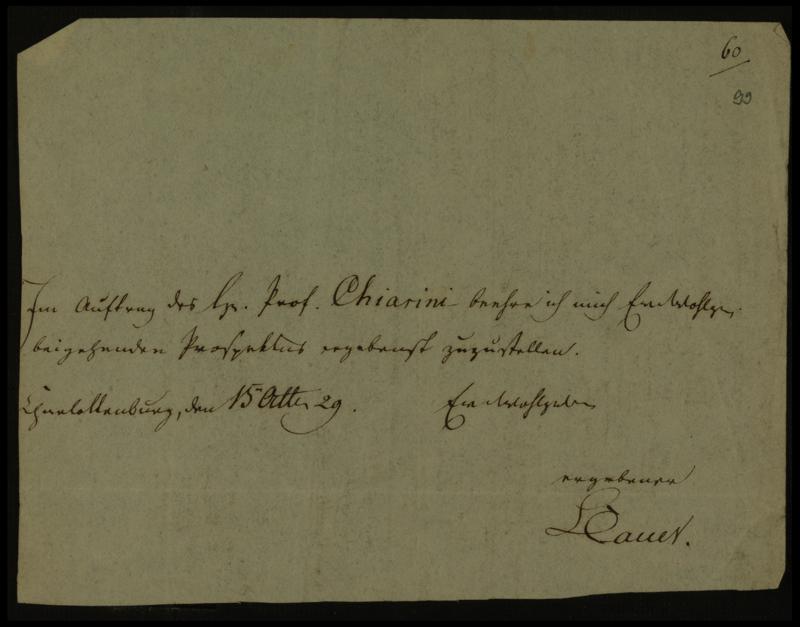 60
99
Im Auftrag des H. Prof. Chiarini beehre ich mich Ew. Wohlgeb.
beigehenden Prospektus ergebenst zuzustellen.
Charlottenburg, den 15 29. Ew Wohlgeb
ergebener